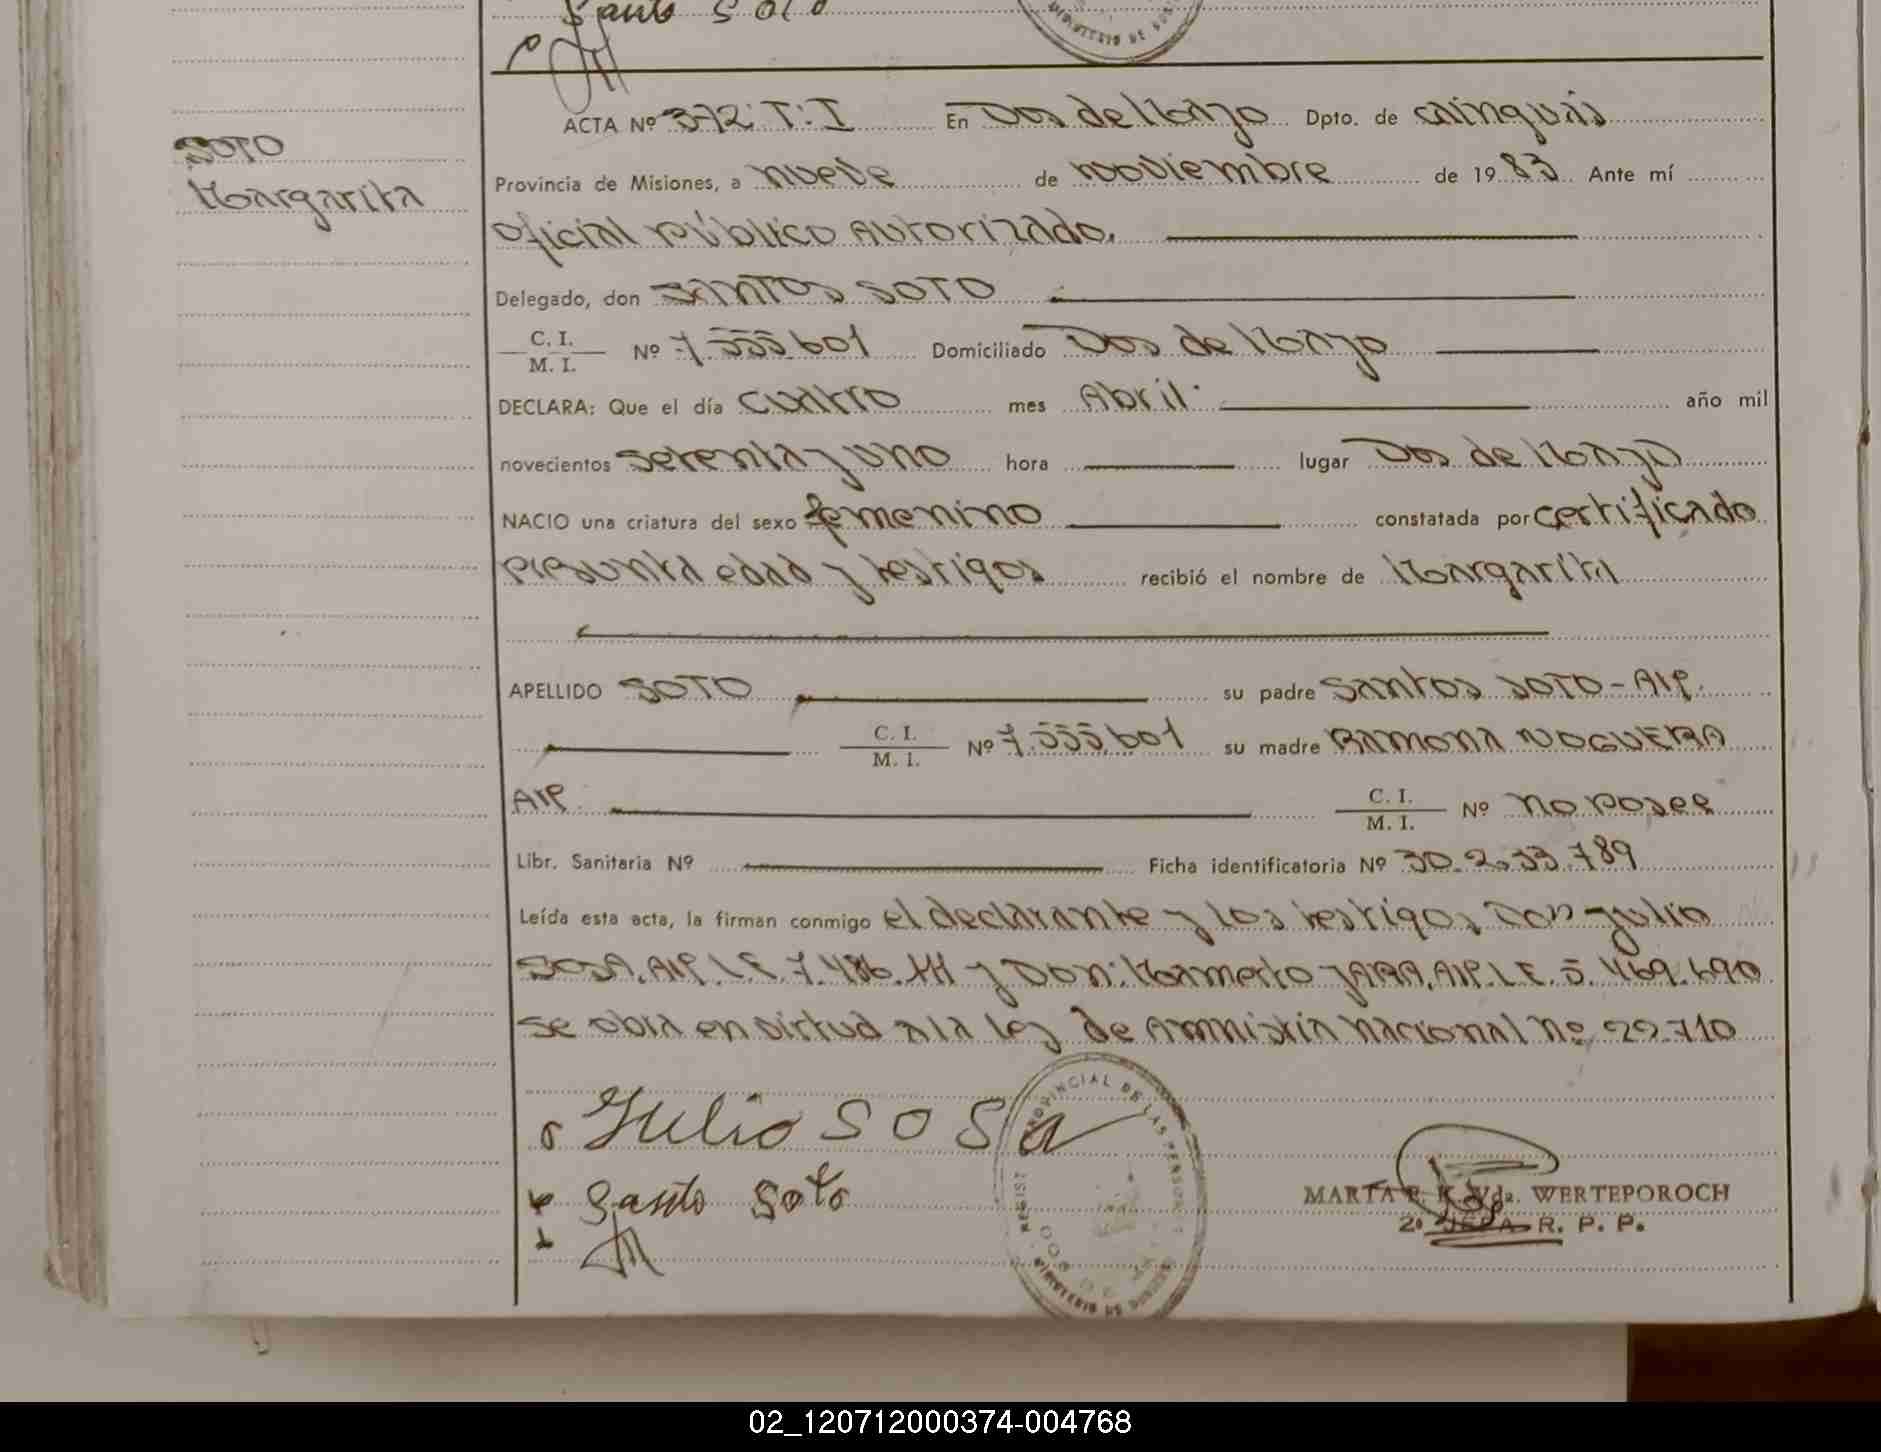 Santo Soto
SOTO
Margarita
ACTA Nº 372 T: I En Dos de Mayo Dpto. de Cainguás
Provincia de Misiones, a nueve de noviembre de 1983 Ante mí
Oficial Público Autorizado.
Delegado, don SANTOS SOTO
C. I.
M. I. Nº 7.555.601 Domiciliado Dos de Mayo
DECLARA: Que el día cuatro mes Abril. año mil
novecientos setenta y uno hora lugar Dos de Mayo
NACIO una criatura del sexo femenino constatada por certificado
presunta edad y testigos recibió el nombre de Margarita
APELLIDO SOTO su padre Santos SOTO - AIP.
C. I.
M. I. Nº 7.555.601 su madre RAMONA NOGUERA
AIP. C. I.
M. I. Nº no posee
Libr. Sanitaria Nº Ficha identificatoria Nº 30.233.789
Leída esta acta, la firman conmigo el declarante y los testigos Don Julio
SOSA, AIP. L.E. 7.486. y Don: Mamerto JARA, AIP. L.E. 5.469.690
se obra en virtud a la Ley de Amnistia Nacional Nº 22.710
Julio SOSa
Santo Soto
MARTA E. K. Vda. WERTEPOROCH
2ª JEFA R. P. P.
PROVINCIAL DE LAS PERSONAS
MINISTERIO DE GOBIERNO
02_120712000374-004768